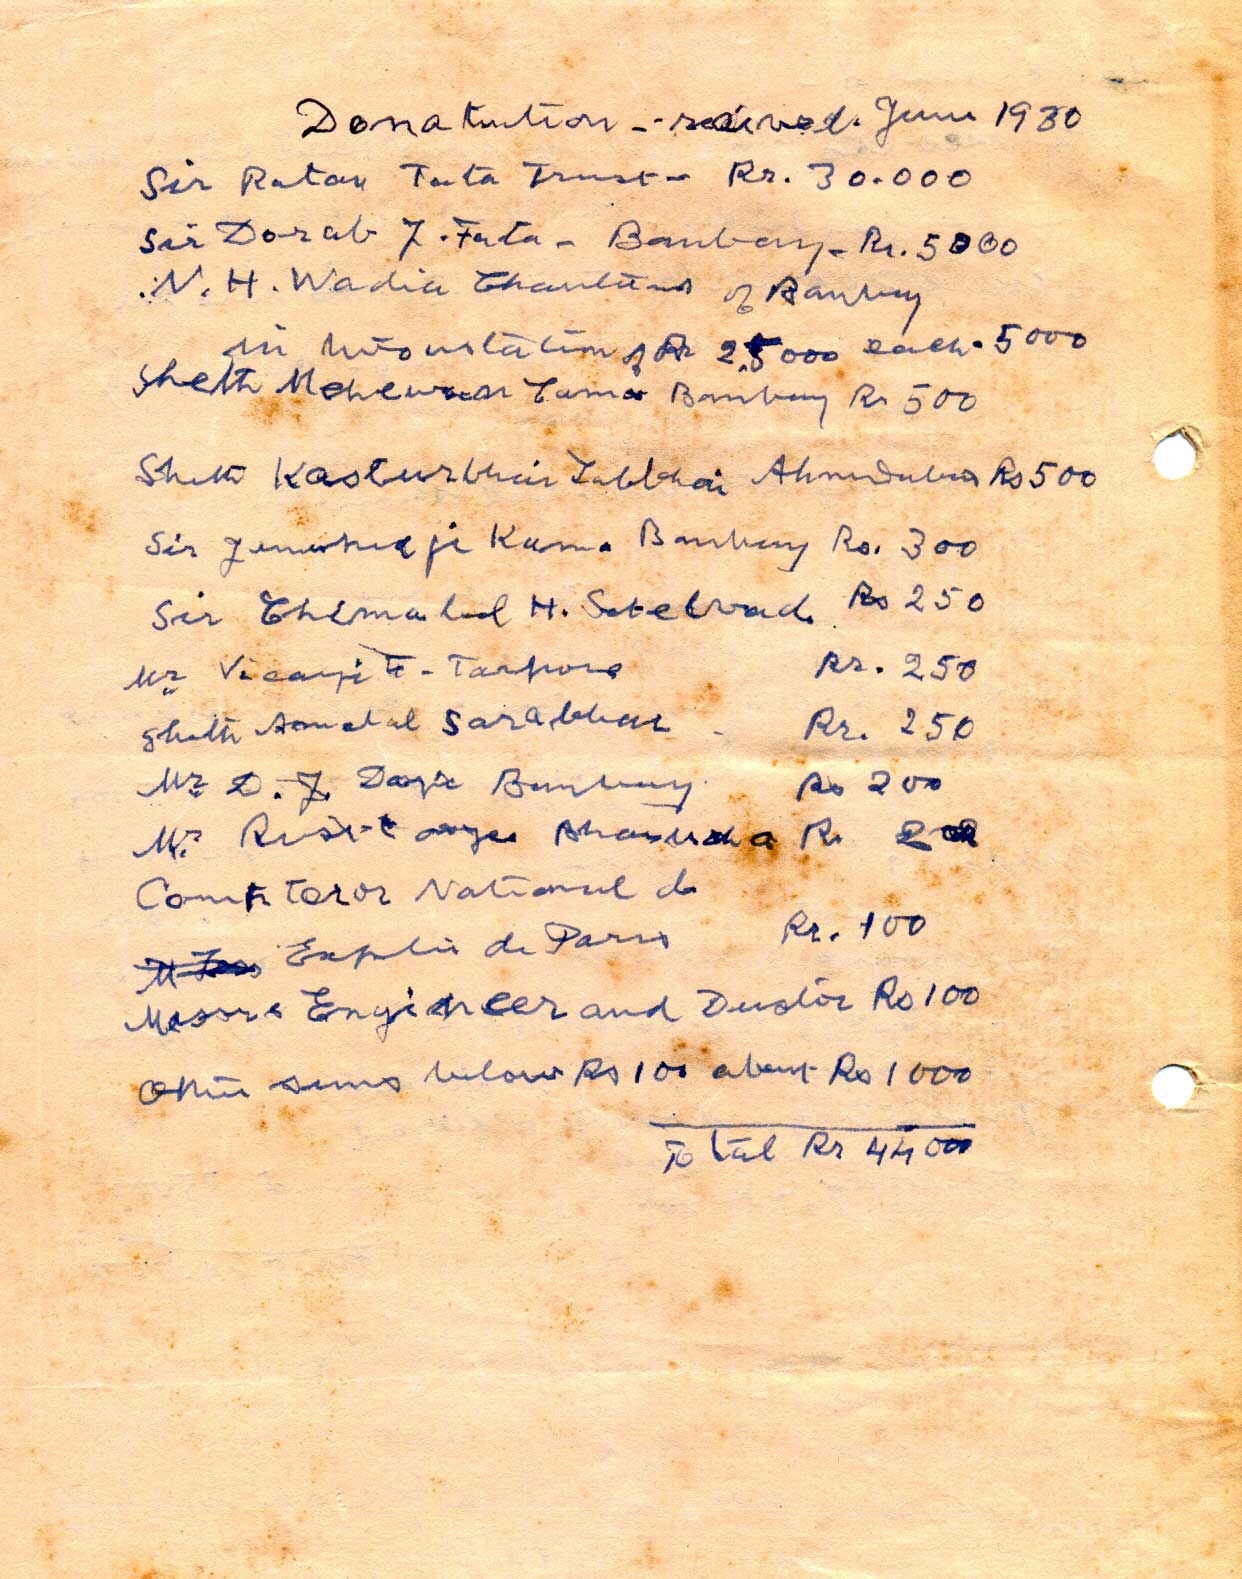 Donatution - received. June 1930
Sir Ratan Tata Trust - Rs. 30.000
Sir Dorab J. Tata - Bombay - Rs. 5000
N. H. Wadia Charities of Bombay
in two of Rs 2.5000 each. 5000
Sheth Kama Bombay Rs 500
Sheth Kasturbhai Lalbhai Ahmedabad Rs 500
Sir Kama Bombay Rs. 300
Sir Chimanlal H. Setelvad. Rs 250
Mr Vicaji - Tarpore Rs. 250
Sheth Sarabhai Rs. 250
Mr D. J. Bombay Rs 200
Mr Rs 200
National de
de Paris Rs. 100
Messrs Engineer and Dustoor Rs 100
Other sums below Rs 100 about Rs 1000
Total Rs 44000